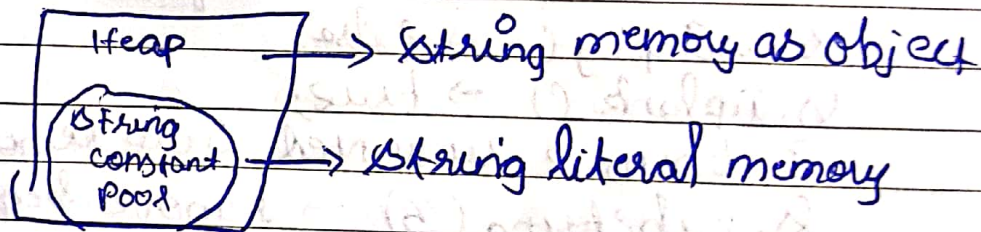 Heap → String memory as object
String
constant → String literal memory
Pool